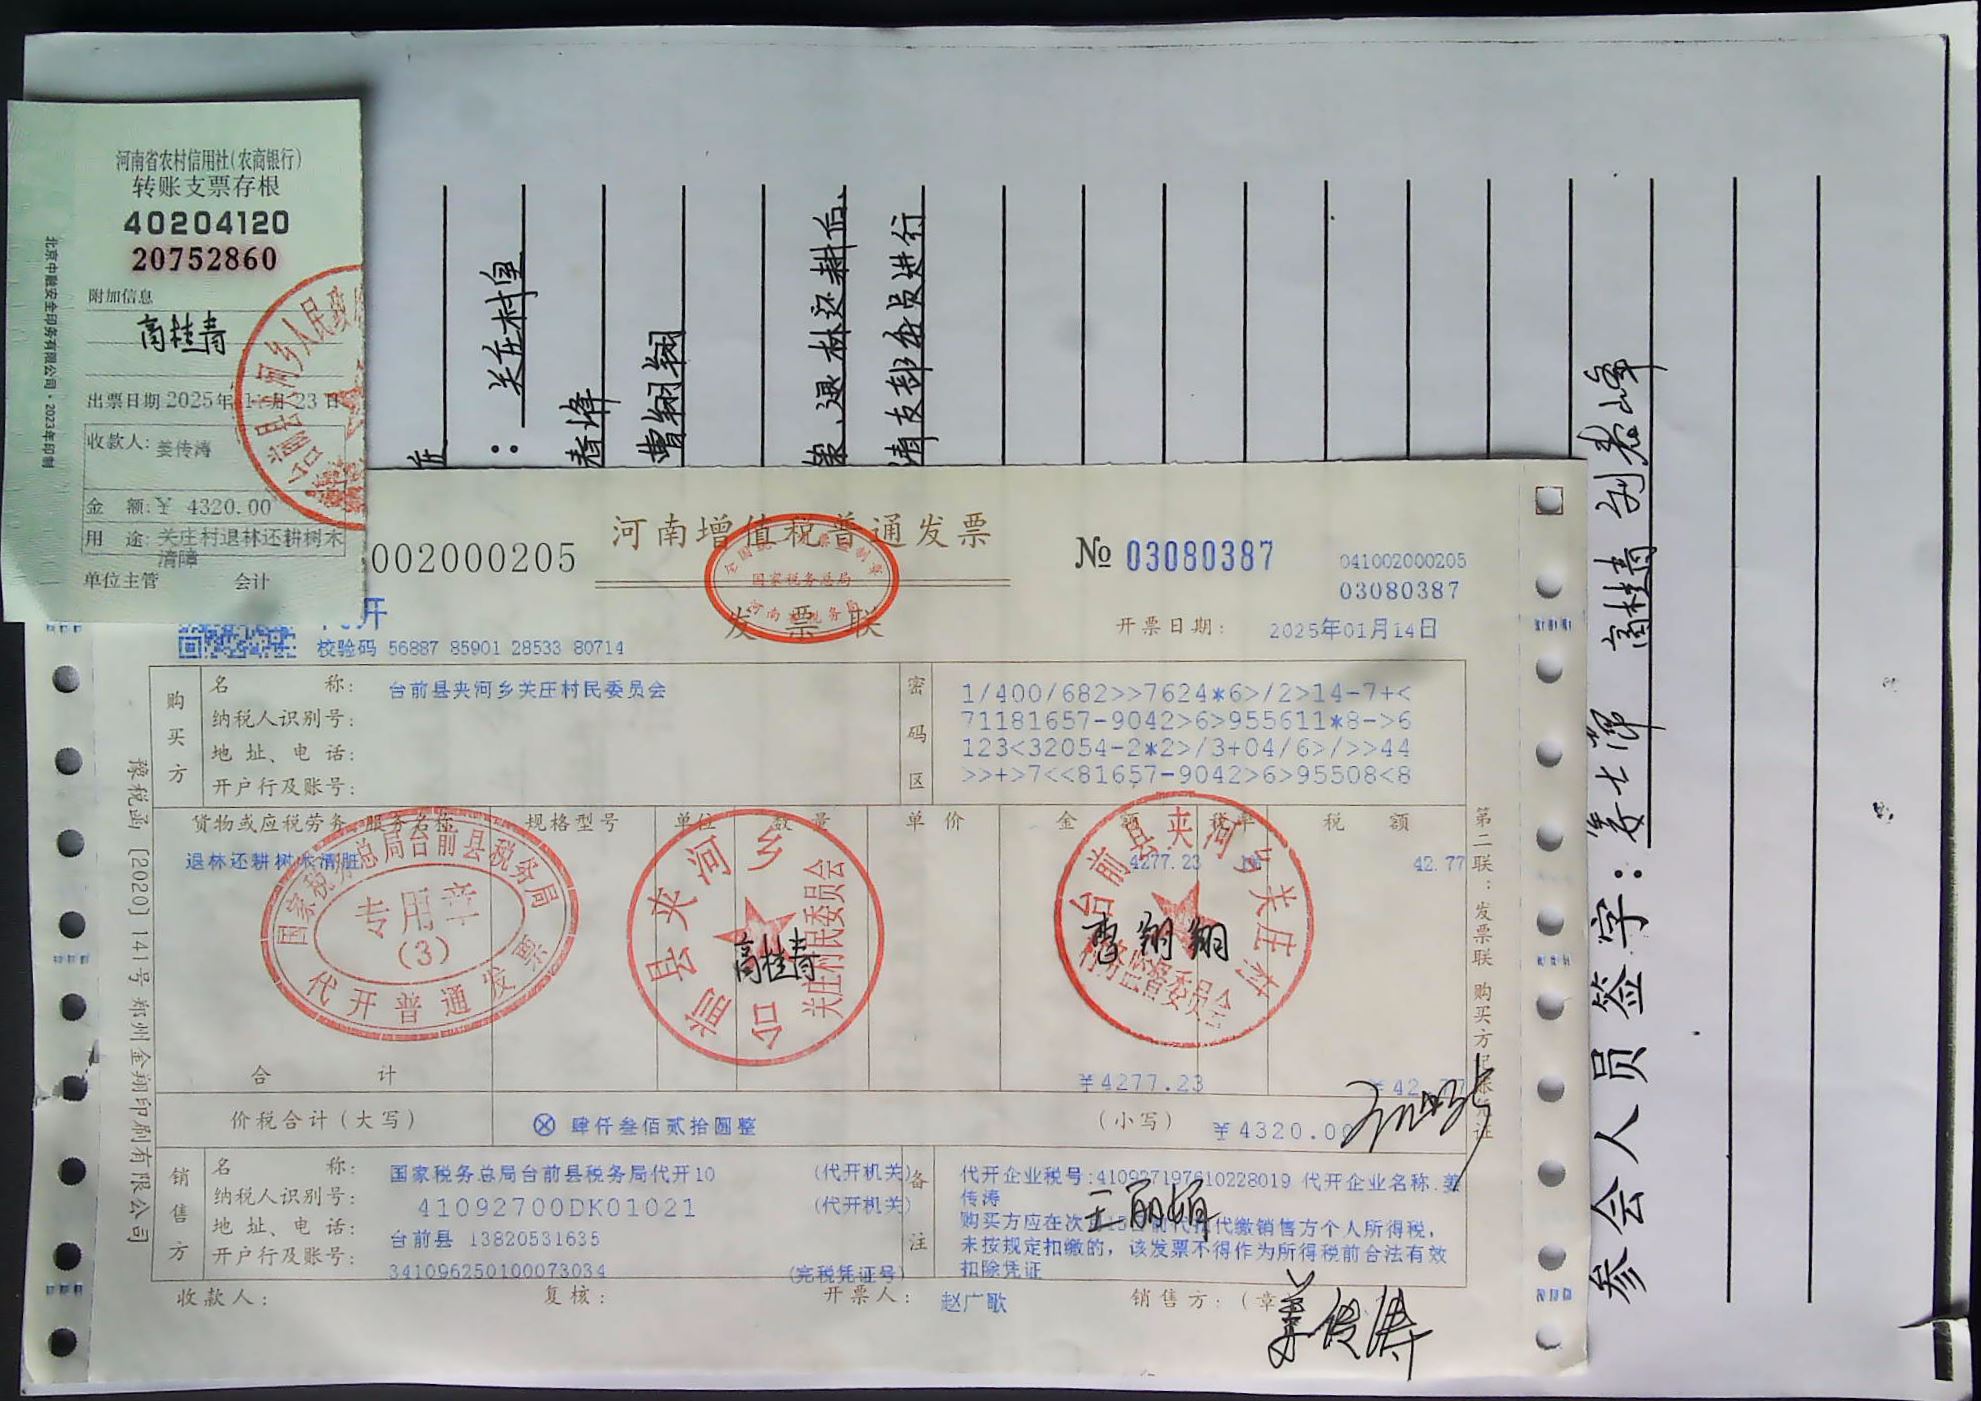 河南省农村信用社(农商银行)
转账支票存根
40204120
20752860
附加信息
高桂青
出票日期 2025年 月23日
收款人: 姜传涛
金 额: ¥ 4320.00
用 途: 关庄村退林还耕树木
清障
单位主管 会计
北京中融安全印务有限公司·2023年印制
关庄村室
曹翔翔
退林还耕后,
进行
参会人员签字: 高桂青
002000205
河南增值税普通发票
发票联
№ 03080387
041002000205
03080387
开票日期: 2025年01月14日
校验码 56887 85901 28533 80714
购买方
名 称: 台前县夹河乡关庄村民委员会
纳税人识别号:
地 址、电 话:
开户行及账号:
密码区
1/400/682>>7624*6>/2>14-7+<
71181657-9042>6>955611*8->6
123<32054-2*2>/3+04/6>/>>44
>>+>7<<81657-9042>6>95508<8
货物或应税劳务、服务名称 规格型号 单位 数量 单价 金额 税率 税额
退林还耕树木清脏 4277.23 42.77
国家税务总局台前县税务局
专用章
(3)
代开普通发票
台前县夹河乡
关庄村民委员会
高桂青
台前县夹河乡关庄村
曹翔翔
合 计 ¥4277.23 ¥42.77
价税合计(大写) ⊗ 肆仟叁佰贰拾圆整 (小写) ¥4320.00
销售方
名 称: 国家税务总局台前县税务局代开10 (代开机关)
纳税人识别号: 41092700DK01021 (代开机关)
地 址、电 话: 台前县 13820531635
开户行及账号: 341096250100073034 (完税凭证号)
备注
代开企业税号:410927197610228019 代开企业名称:姜
传涛
购买方应在次 代缴销售方个人所得税,
未按规定扣缴的,该发票不得作为所得税前合法有效
扣除凭证
收款人: 复核: 开票人: 赵广歌 销售方:(章
姜传涛
豫税函 [2020] 141号 郑州金翔印刷有限公司
第二联:发票联 购买方记账凭证